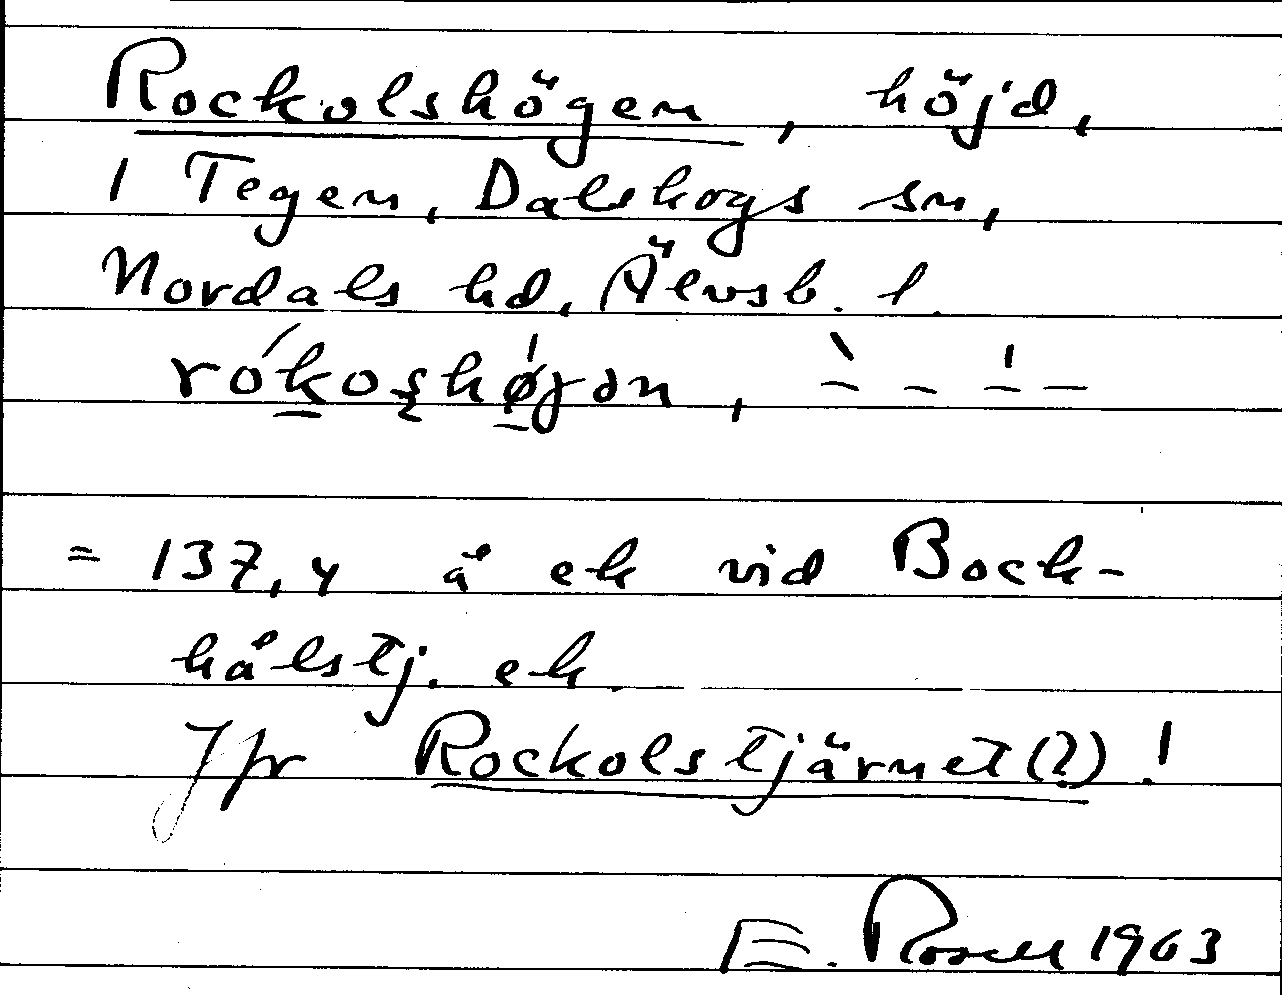 Rockolshögen, höjd,
1 Tegen, Dalskogs sn,
Nordals hd, Älvsb. l.
= 137,4 å ek vid Bock-
hålstj. ek.
Jfr Rockolstjärnet(?)!
E. Rosell 1963